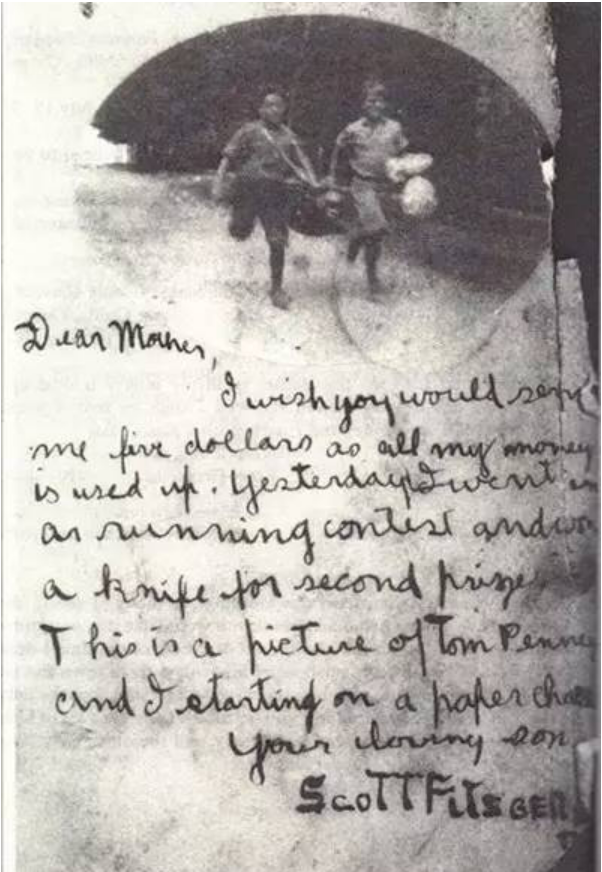 Dear Mother,
I wish you would send
me five dollars as all my money
is used up. Yesterday I went in
a running contest and won
a knife for second prize
This is a picture of Tom Penney
and I starting on a paper chase
Your loving son
SCOTT FITSGER
D